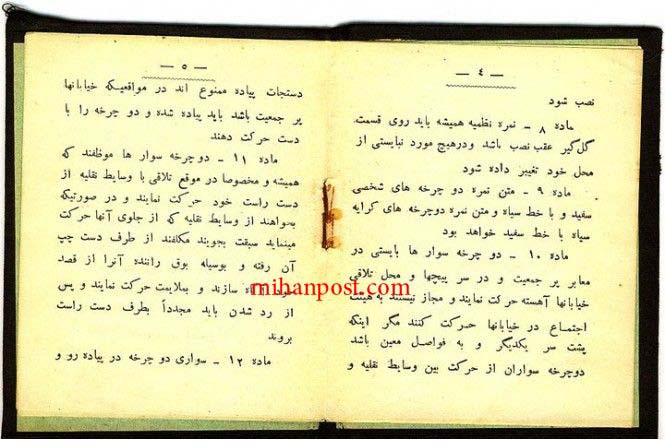 - ٤ -
نصب شود
ماده ۸ - نمره نظمیه همیشه باید روی قسمت
گل‌گیر عقب نصب باشد ودرهیچ مورد نبایستی از
محل خود تغییر داده شود
ماده ۹ - متن نمره دو چرخه های شخصی
سفید و با خط سیاه و متن نمره دوچرخه های کرایه
سیاه با خط سفید خواهد بود
ماده ۱۰ - دو چرخه سوار ها بایستی در
معابر پر جمعیت و در سر پیچها و محل تلاقی
خیابانها آهسته حرکت نمایند و مجاز نیستند به هیئت
اجتماع در خیابانها حرکت کنند مگر اینکه
پشت سر یکدیگر و به فواصل معین باشد
دوچرخه سواران از حرکت بین وسایط نقلیه و
- ٥ -
دستجات پیاده ممنوع اند در مواقعیکه خیابانها
پر جمعیت باشد باید پیاده شده و دو چرخه را با
دست حرکت دهند
ماده ۱۱ - دوچرخه سوار ها موظفند که
همیشه و مخصوصا در موقع تلاقی با وسایط نقلیه از
دست راست خود حرکت نمایند و در صورتیکه
بخواهند از وسایط نقلیه که از جلوی آنها حرکت
مینماید سبقت بجویند مکلفند از طرف دست چپ
آن رفته و بوسیله بوق راننده آنرا از قصد
سازند و بملایمت حرکت نمایند و پس
از رد شدن باید مجدداً بطرف دست راست
بروند
ماده ۱۲ - سواری دو چرخه در پیاده رو و
mihanpost.com